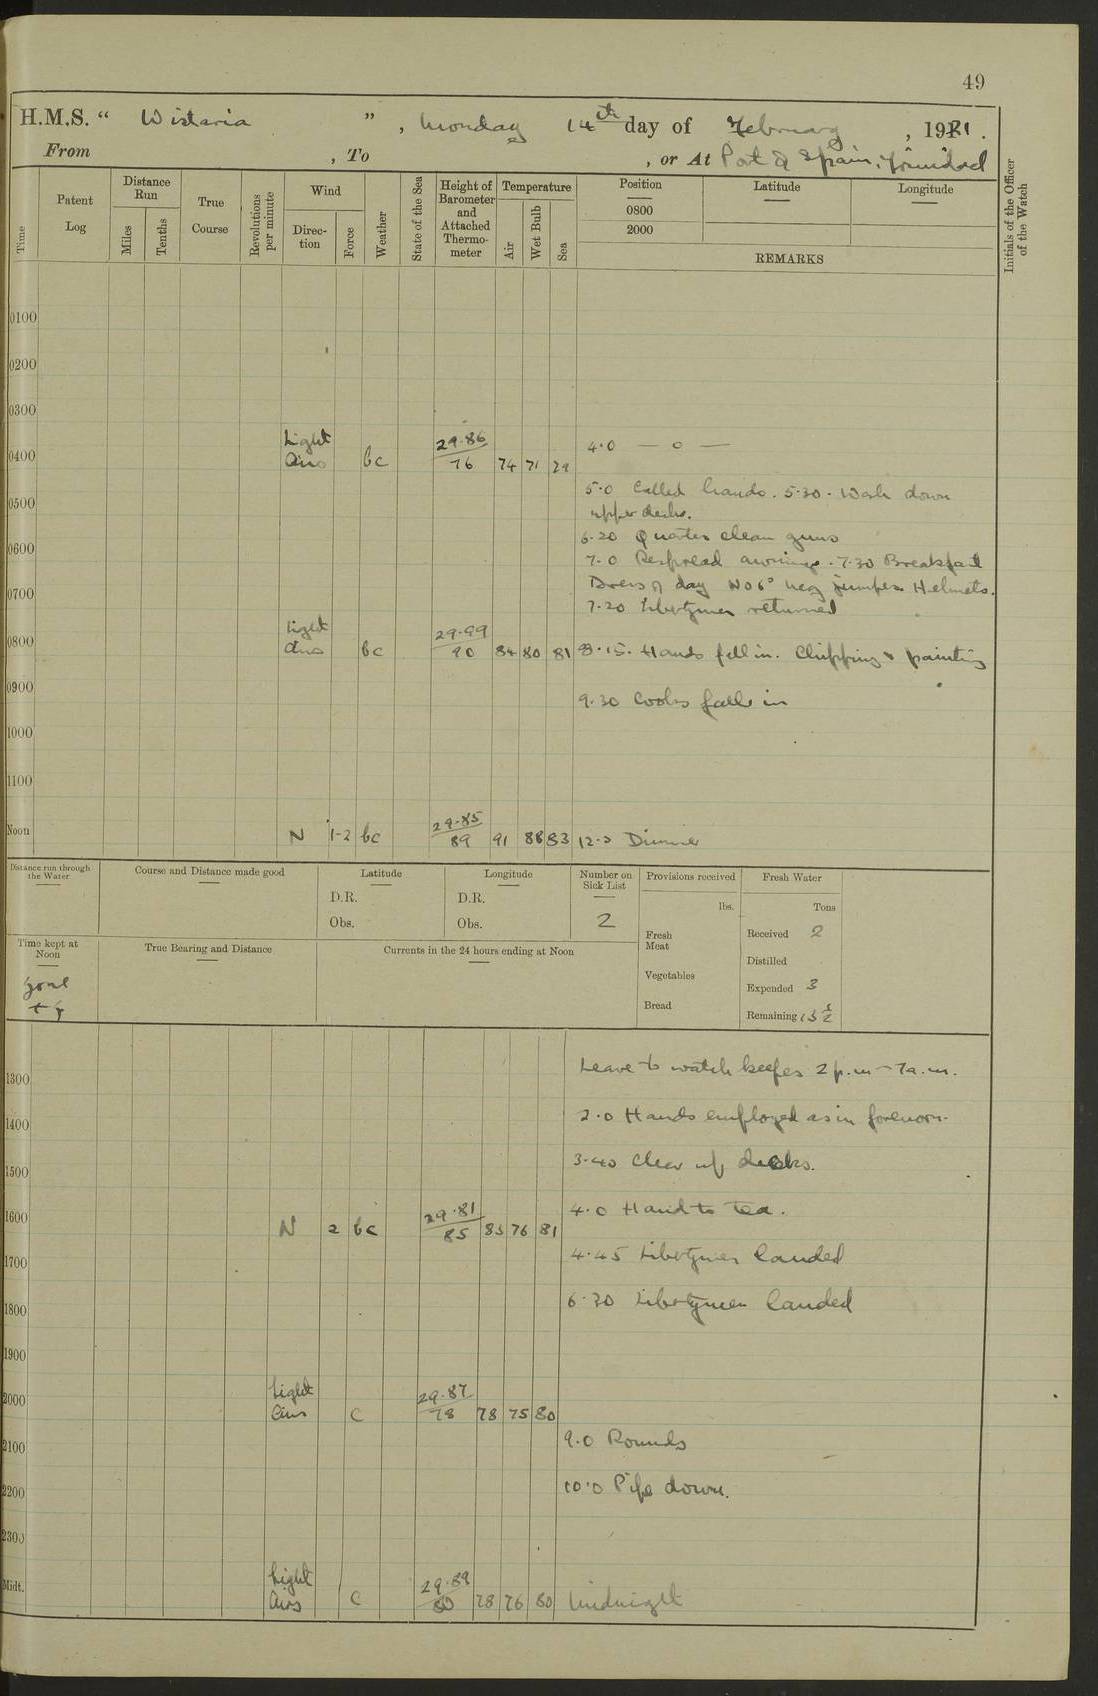 49
H.M.S. “ Wistaria ”, Monday 14th day of February, 1921.
From , To , or At Port of Spain, Trinidad
Time
Patent Log
Distance Run
Miles
Tenths
True Course
Revolutions per minute
Wind
Direction
Force
Weather
State of the Sea
Height of Barometer and Attached Thermometer
Temperature
Air
Wet Bulb
Sea
Position
0800
2000
Latitude
Longitude
REMARKS
Initials of the Officer of the Watch
0100
0200
0300
0400 Light airs bc 29.86 76 74 71 79 4.0 — o —
0500 5.0 Called hands. 5.30. Wash down
upper decks.
0600 6.20 Quarters clean guns
7.0 Respread awnings. 7.30 Breakfast
0700 Dress of day No 6 neg jumper. Helmets.
7.20 Libertymen returned
0800 Light airs bc 29.99 90 84 80 81 8.15. Hands fell in. Chipping & painting
0900 9.30 Cooks fall in
1000
1100
Noon N 1-2 bc 29.85 89 91 88 83 12.0 Dinner
Distance run through the Water
Course and Distance made good
Latitude
D.R.
Obs.
Longitude
D.R.
Obs.
Number on Sick List
2
Provisions received
lbs.
Fresh Meat
Vegetables
Bread
Fresh Water
Tons
Received 2
Distilled
Expended 3
Remaining 13½
Time kept at Noon
Zone
+4
True Bearing and Distance
Currents in the 24 hours ending at Noon
Leave to watch keepers 2 p.m – 7 a.m.
1300
1400 2.0 Hands employed as in forenoon.
1500 3.40 Clear up decks.
1600 N 2 bc 29.81 85 85 76 81 4.0 Hands to tea.
1700 4.45 Libertymen landed
1800 6.30 Libertymen landed
1900
2000 Light airs c 29.87 78 78 75 80
2100 9.0 Rounds
2200 10.0 Pipe down.
2300
Midt. Light airs c 29.89 80 78 76 80 Midnight